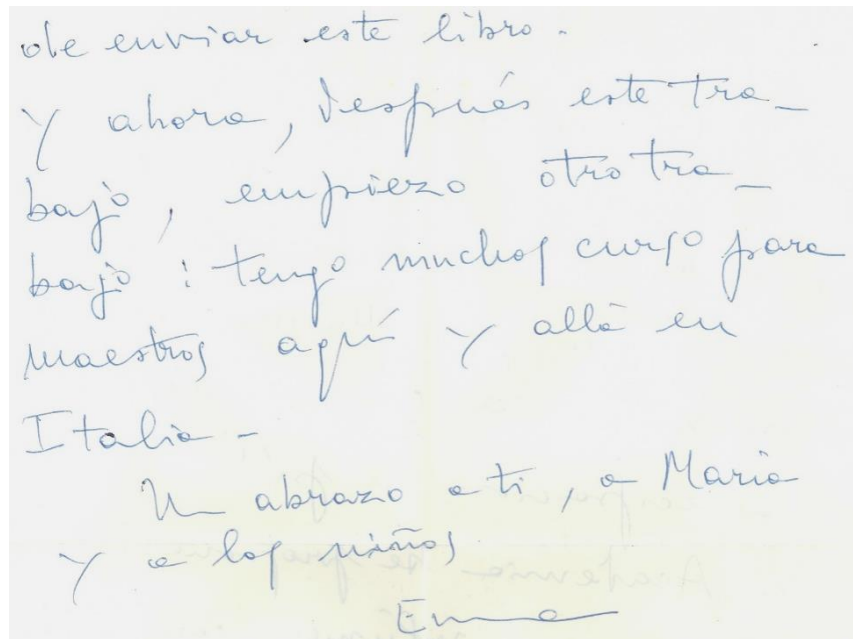 de enviar este libro.
Y ahora, después este tra_
bajo, empiezo otro tra_
bajo : tengo muchos curso para
maestros aquí y allà en
Italia -
Un abrazo a ti, a Maria
y a los niños
Emma